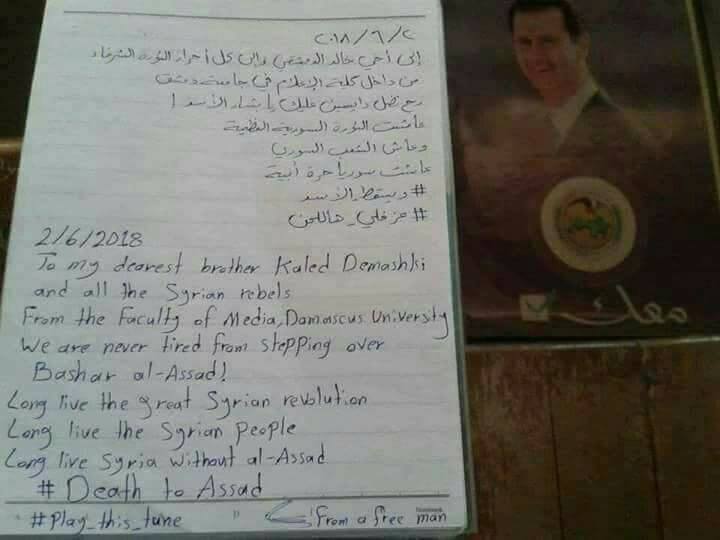 ٢٠١٨/٦/٢
إلى أخي خالد الدمشقي وإلى كل أحرار الثورة الشرفاء
من داخل كلية الإعلام في جامعة دمشق
رح نضل دايسين عليك يا بشار الأسد !
عاشت الثورة السورية العظيمة
وعاش الشعب السوري
عاشت سوريا حرة أبية
#ويسقط_الأسد
#عزفلي_هاللحن
2/6/2018
To my dearest brother Kaled Demashki
and all the Syrian rebels
From the Faculty of Media, Damascus University
We are never tired from stepping over
Bashar al-Assad!
Long live the great Syrian revolution
Long live the Syrian People
Long live Syria without al-Assad
# Death to Assad
#Play_this_tune
From a free man
معك